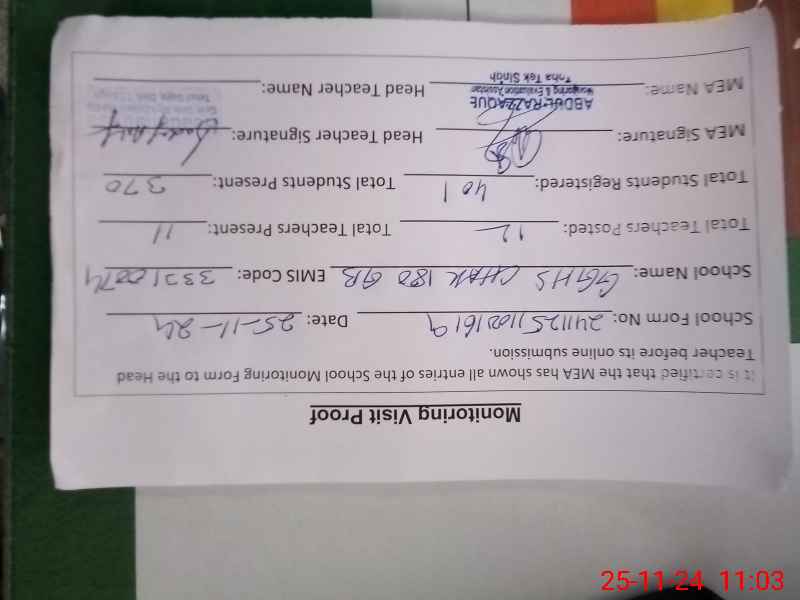 Monitoring Visit Proof
It is certified that the MEA has shown all entries of the School Monitoring Form to the Head
Teacher before its online submission.
School Form No: 24112511021619 Date: 25-11-24
School Name: GGHS CHAK 180 GB EMIS Code: 33210074
Total Teachers Posted: 12 Total Teachers Present: 11
Total Students Registered: 401 Total Students Present: 370
MEA Signature: Head Teacher Signature:
MEA Name: ABDUL RAZZAQUE Head Teacher Name:
Monitoring & Evaluation Assistant
Toba Tek Singh
25-11-24 11:03